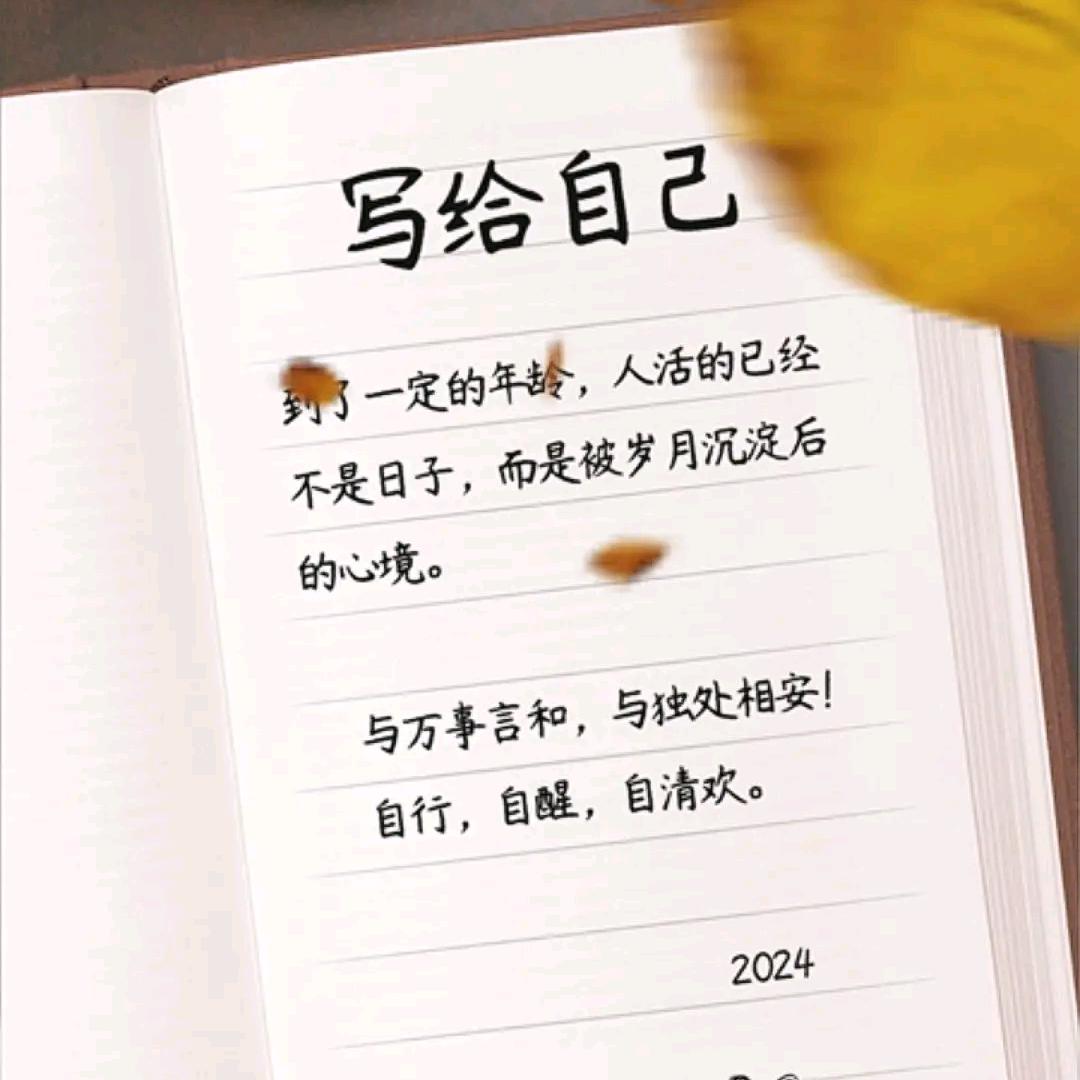 写给自己
到了一定的年龄，人活的已经
不是日子，而是被岁月沉淀后
的心境。
与万事言和，与独处相安！
自行，自醒，自清欢。
2024